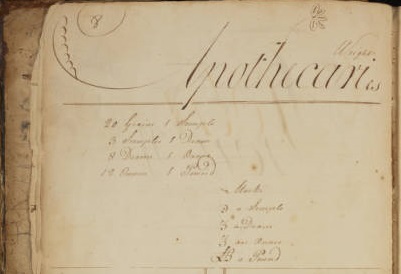 8
Weight
Apothecaries
20 Grains 1 Scruple
3 Scruples 1 Dram
8 Drams 1 Ounce
12 Ounces 1 Pound
Marks
a Scruple
a Dram
an Ounce
a Pound